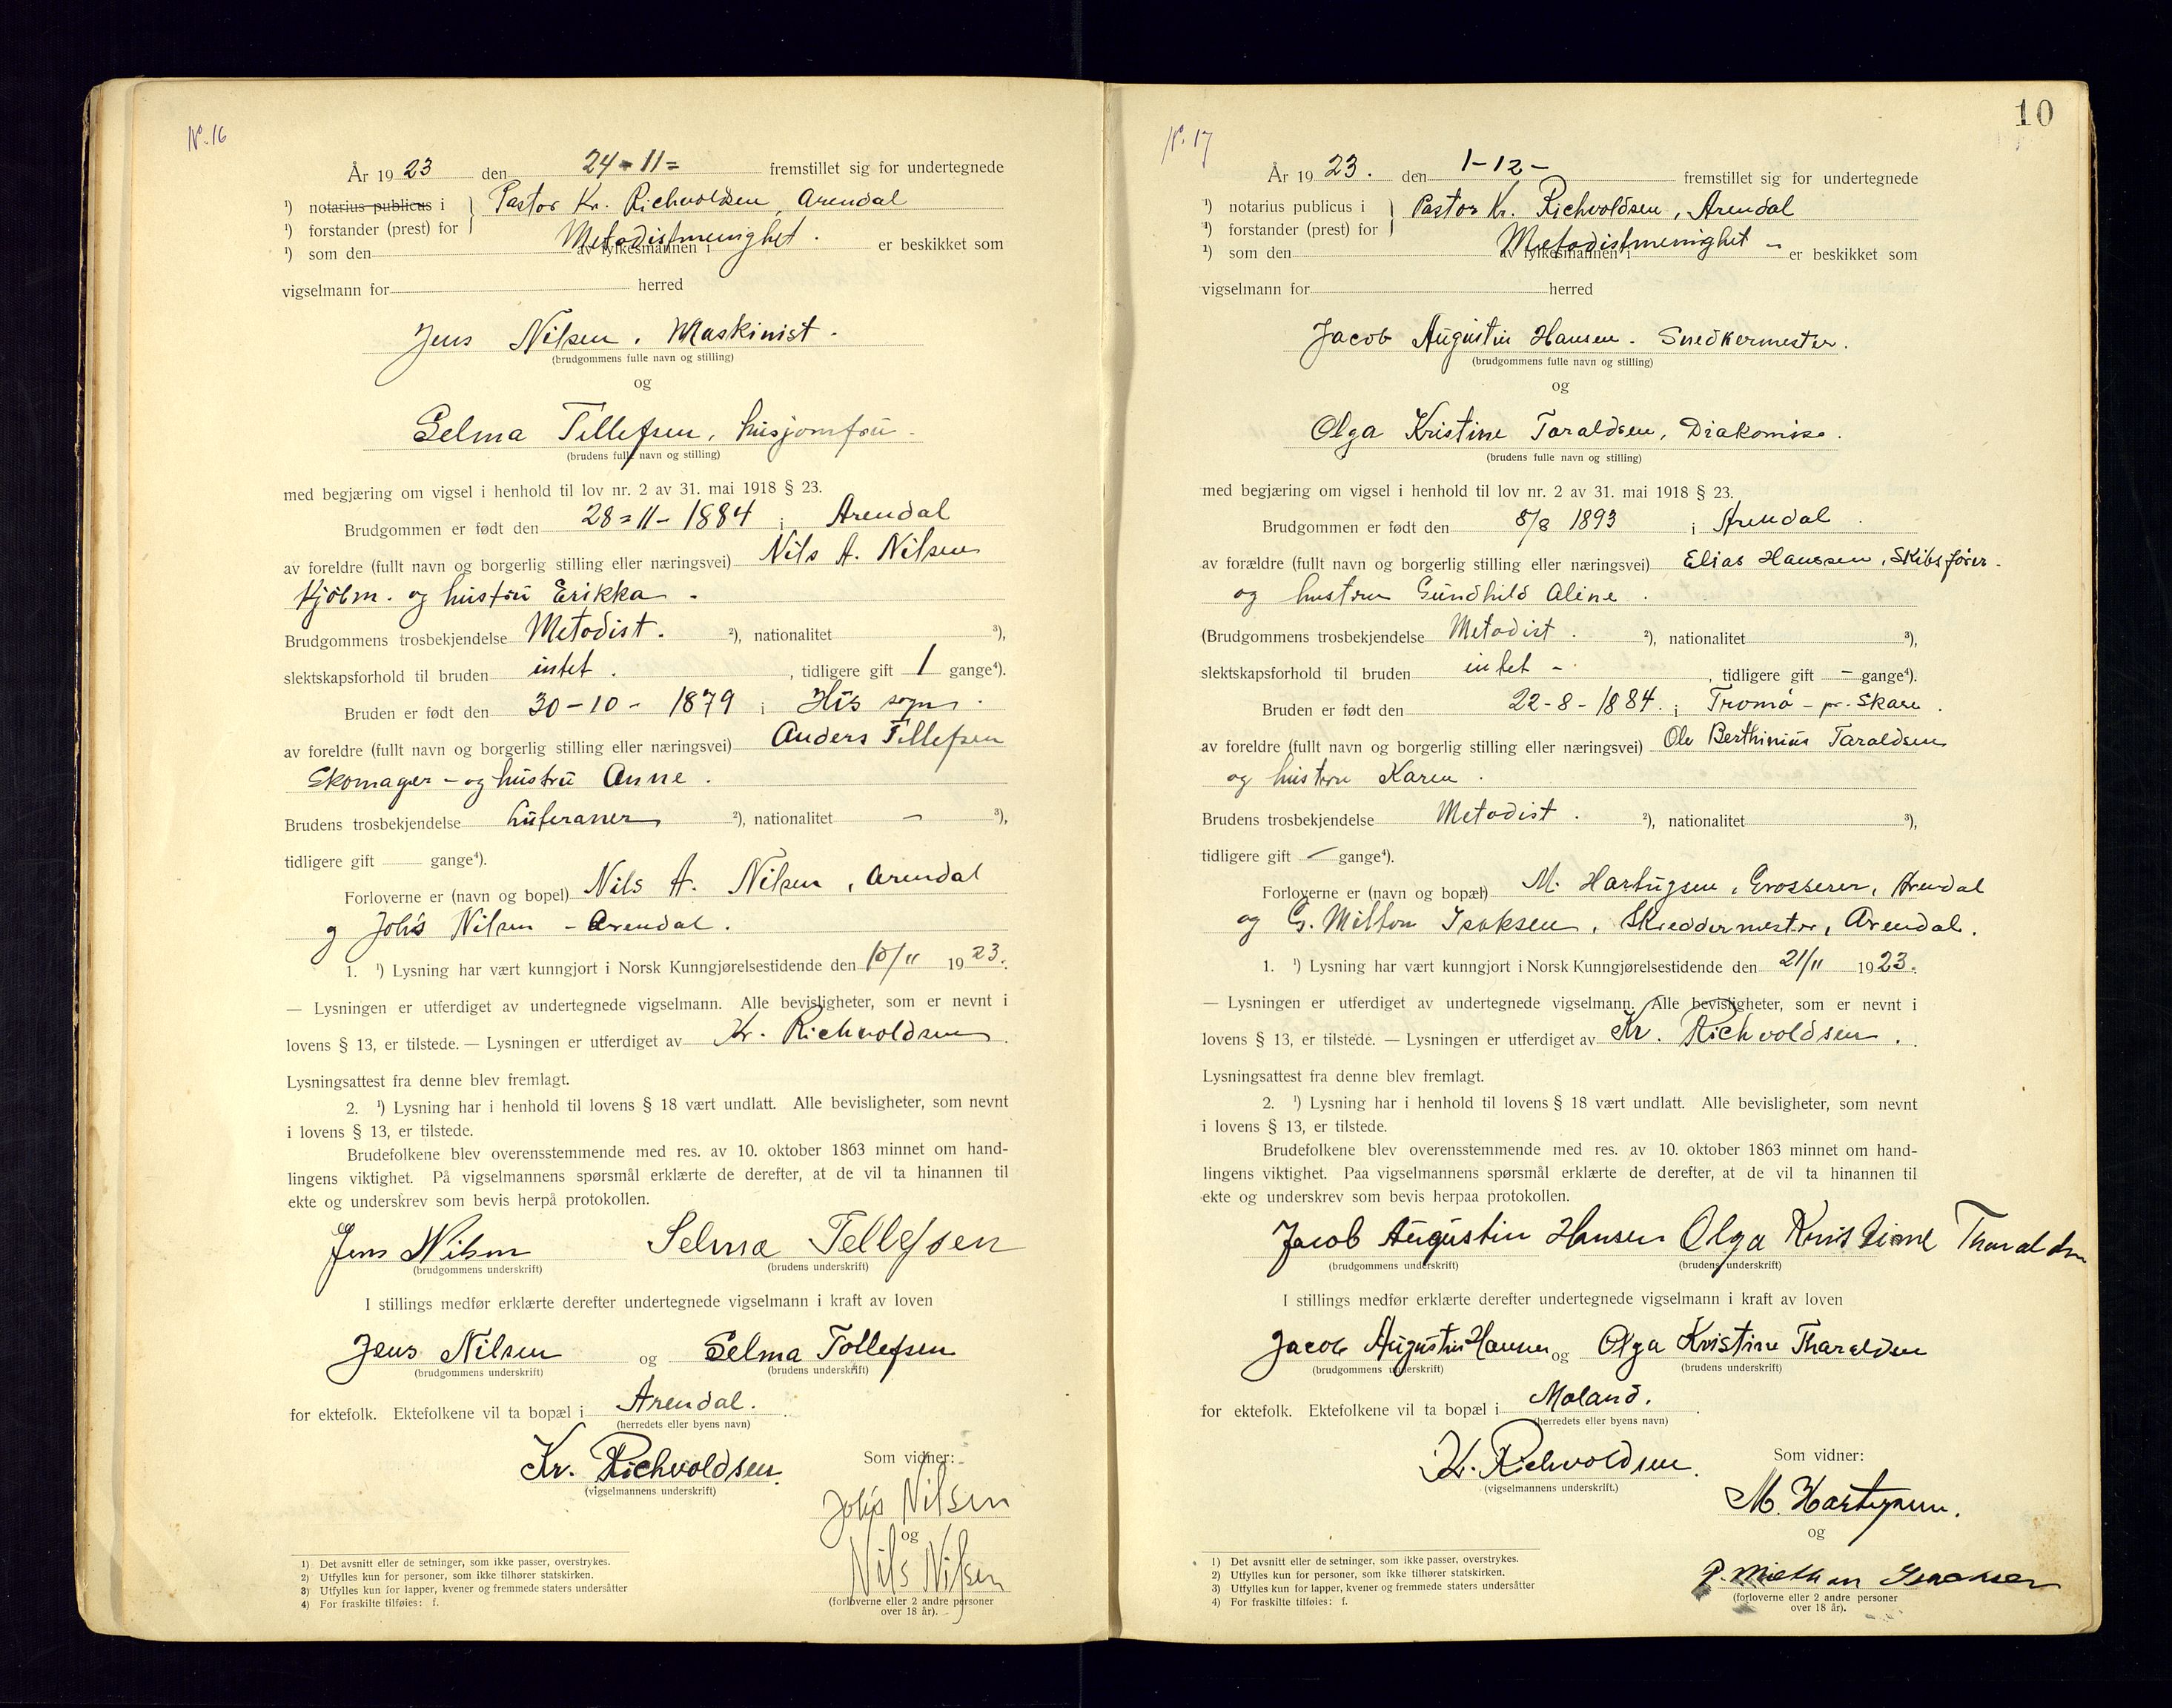 No. 16
År 1923 den 24-11= fremstillet sig for undertegnede
¹) notarius publicus i } Pastor Kr. Richvoldsen, Arendal
¹) forstander (prest) for
Metodistmenighet.
¹) som den av fylkesmannen i er beskikket som
vigselmann for herred
Jens Nilsen. Maskinist.
(brudgommens fulle navn og stilling)
og
Selma Tellefsen, husjomfru.
(brudens fulle navn og stilling)
med begjæring om vigsel i henhold til lov nr. 2 av 31. mai 1918 § 23.
Brudgommen er født den 28=11-1884 i Arendal
av foreldre (fullt navn og borgerlig stilling eller næringsvei) Nils A. Nilsen
Kjøbm. og hustru Erikka.
Brudgommens trosbekjendelse Metodist. ²), nationalitet ³),
slektskapsforhold til bruden intet. , tidligere gift 1 gange⁴).
Bruden er født den 30-10-1879 i His sogn.
av foreldre (fullt navn og borgerlig stilling eller næringsvei) Anders Tellefsen
Skomager - og hustru Anne.
Brudens trosbekjendelse Luteraner ²), nationalitet — ³),
tidligere gift gange⁴).
Forloverne er (navn og bopel) Nils A. Nilsen, Arendal
og Johs Nilsen - Arendal.
1. ¹) Lysning har vært kunngjort i Norsk Kunngjørelsestidende den 10/11 1923.
— Lysningen er utferdiget av undertegnede vigselmann. Alle bevisligheter, som er nevnt i
lovens § 13, er tilstede. — Lysningen er utferdiget av Kr. Richvoldsen.
Lysningsattest fra denne blev fremlagt.
2. ¹) Lysning har i henhold til lovens § 18 vært undlatt. Alle bevisligheter, som nevnt
i lovens § 13, er tilstede.
Brudefolkene blev overensstemmende med res. av 10. oktober 1863 minnet om hand-
lingens viktighet. På vigselmannens spørsmål erklærte de derefter, at de vil ta hinannen til
ekte og underskrev som bevis herpå protokollen.
Jens Nilsen Selma Tellefsen
(brudgommens underskrift) (brudens underskrift)
I stillings medfør erklærte derefter undertegnede vigselmann i kraft av loven
Jens Nilsen og Selma Tollefsen
(brudgommens underskrift) (brudens underskrift)
for ektefolk. Ektefolkene vil ta bopæl i Arendal.
(herredets eller byens navn)
Kr. Richvoldsen.
(vigselmannens underskrift)
Som vidner:
Johs Nilsen
og
Nils Nilsen
(forloverne eller 2 andre personer
over 18 år).
1) Det avsnitt eller de setninger, som ikke passer, overstrykes.
2) Utfylles kun for personer, som ikke tilhører statskirken.
3) Utfylles kun for lapper, kvener og fremmede staters undersåtter
4) For fraskilte tilføies: f.
10
No. 17
År 1923. den 1-12- fremstillet sig for undertegnede
¹) notarius publicus i } Pastor Kr. Richvoldsen, Arendal
¹) forstander (prest) for
Metodistmenighet -
¹) som den av fylkesmannen i er beskikket som
vigselmann for herred
Jacob Augustin Hansen. Snedkermester.
(brudgommens fulle navn og stilling)
og
Olga Kristine Taraldsen, Diakonisse.
(brudens fulle navn og stilling)
med begjæring om vigsel i henhold til lov nr. 2 av 31. mai 1918 § 23.
Brudgommen er født den 8/8 1893 i Arendal.
av forældre (fullt navn og borgerlig stilling eller næringsvei) Elias Hanssen, Skibsfører.
og hustru Gundhild Aline.
(Brudgommens trosbekjendelse Metodist. ²), nationalitet ³),
slektskapsforhold til bruden intet -. , tidligere gift - gange⁴).
Bruden er født den 22-8-1884. i Tromø - pr. Skare.
av foreldre (fullt navn og borgerlig stilling eller næringsvei) Ole Berthinius Taraldsen
og hustru Karen.
Brudens trosbekjendelse Metodist. ²), nationalitet ³),
tidligere gift - gange⁴).
Forloverne er (navn og bopæl) M. Hartugsen, Grosserer, Arendal
og G. Milton Isaksen, Skreddermester, Arendal.
1. ¹) Lysning har vært kunngjort i Norsk Kunngjørelsestidende den 21/11 1923.
— Lysningen er utferdiget av undertegnede vigselmann. Alle bevisligheter, som er nevnt i
lovens § 13, er tilstede. — Lysningen er utferdiget av Kr. Richvoldsen.
Lysningsattest fra denne blev fremlagt.
2. ¹) Lysning har i henhold til lovens § 18 vært undlatt. Alle bevisligheter, som nevnt
i lovens § 13, er tilstede.
Brudefolkene blev overensstemmende med res. av 10. oktober 1863 minnet om hand-
lingens viktighet. Paa vigselmannens spørsmål erklærte de derefter, at de vil ta hinannen til
ekte og underskrev som bevis herpaa protokollen.
Jacob Augustin Hansen Olga Kristine Tharaldsen
(brudgommens underskrift) (brudens underskrift)
I stillings medfør erklærte derefter undertegnede vigselmann i kraft av loven
Jacob Augustin Hansen og Olga Kristine Tharaldsen
(brudgommens underskrift) (brudens underskrift)
for ektefolk. Ektefolkene vil ta bopæl i Moland.
(herredets eller byens navn)
Kr. Richvoldsen.
(vigselmannens underskrift.)
Som vidner:
M. Hartugsen.
og
Isaksen
(forloverne eller 2 andre personer
over 18 år).
1) Det avsnitt eller de setninger, som ikke passer, overstrykes.
2) Utfylles kun for personer, som ikke tilhører statskirken.
3) Utfylles kun for lapper, kvener og fremmede staters undersåtter
4) For fraskilte tilføies: f.